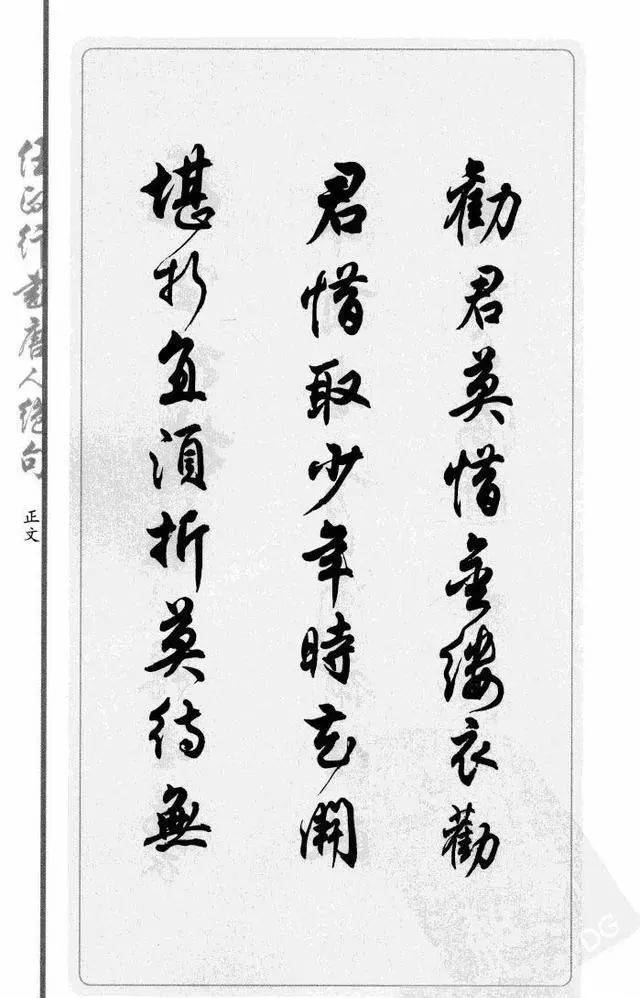 勸君莫惜金縷衣勸
君惜取少年時花開
堪折直須折莫待無
任政行書唐人絕句
正文
DG